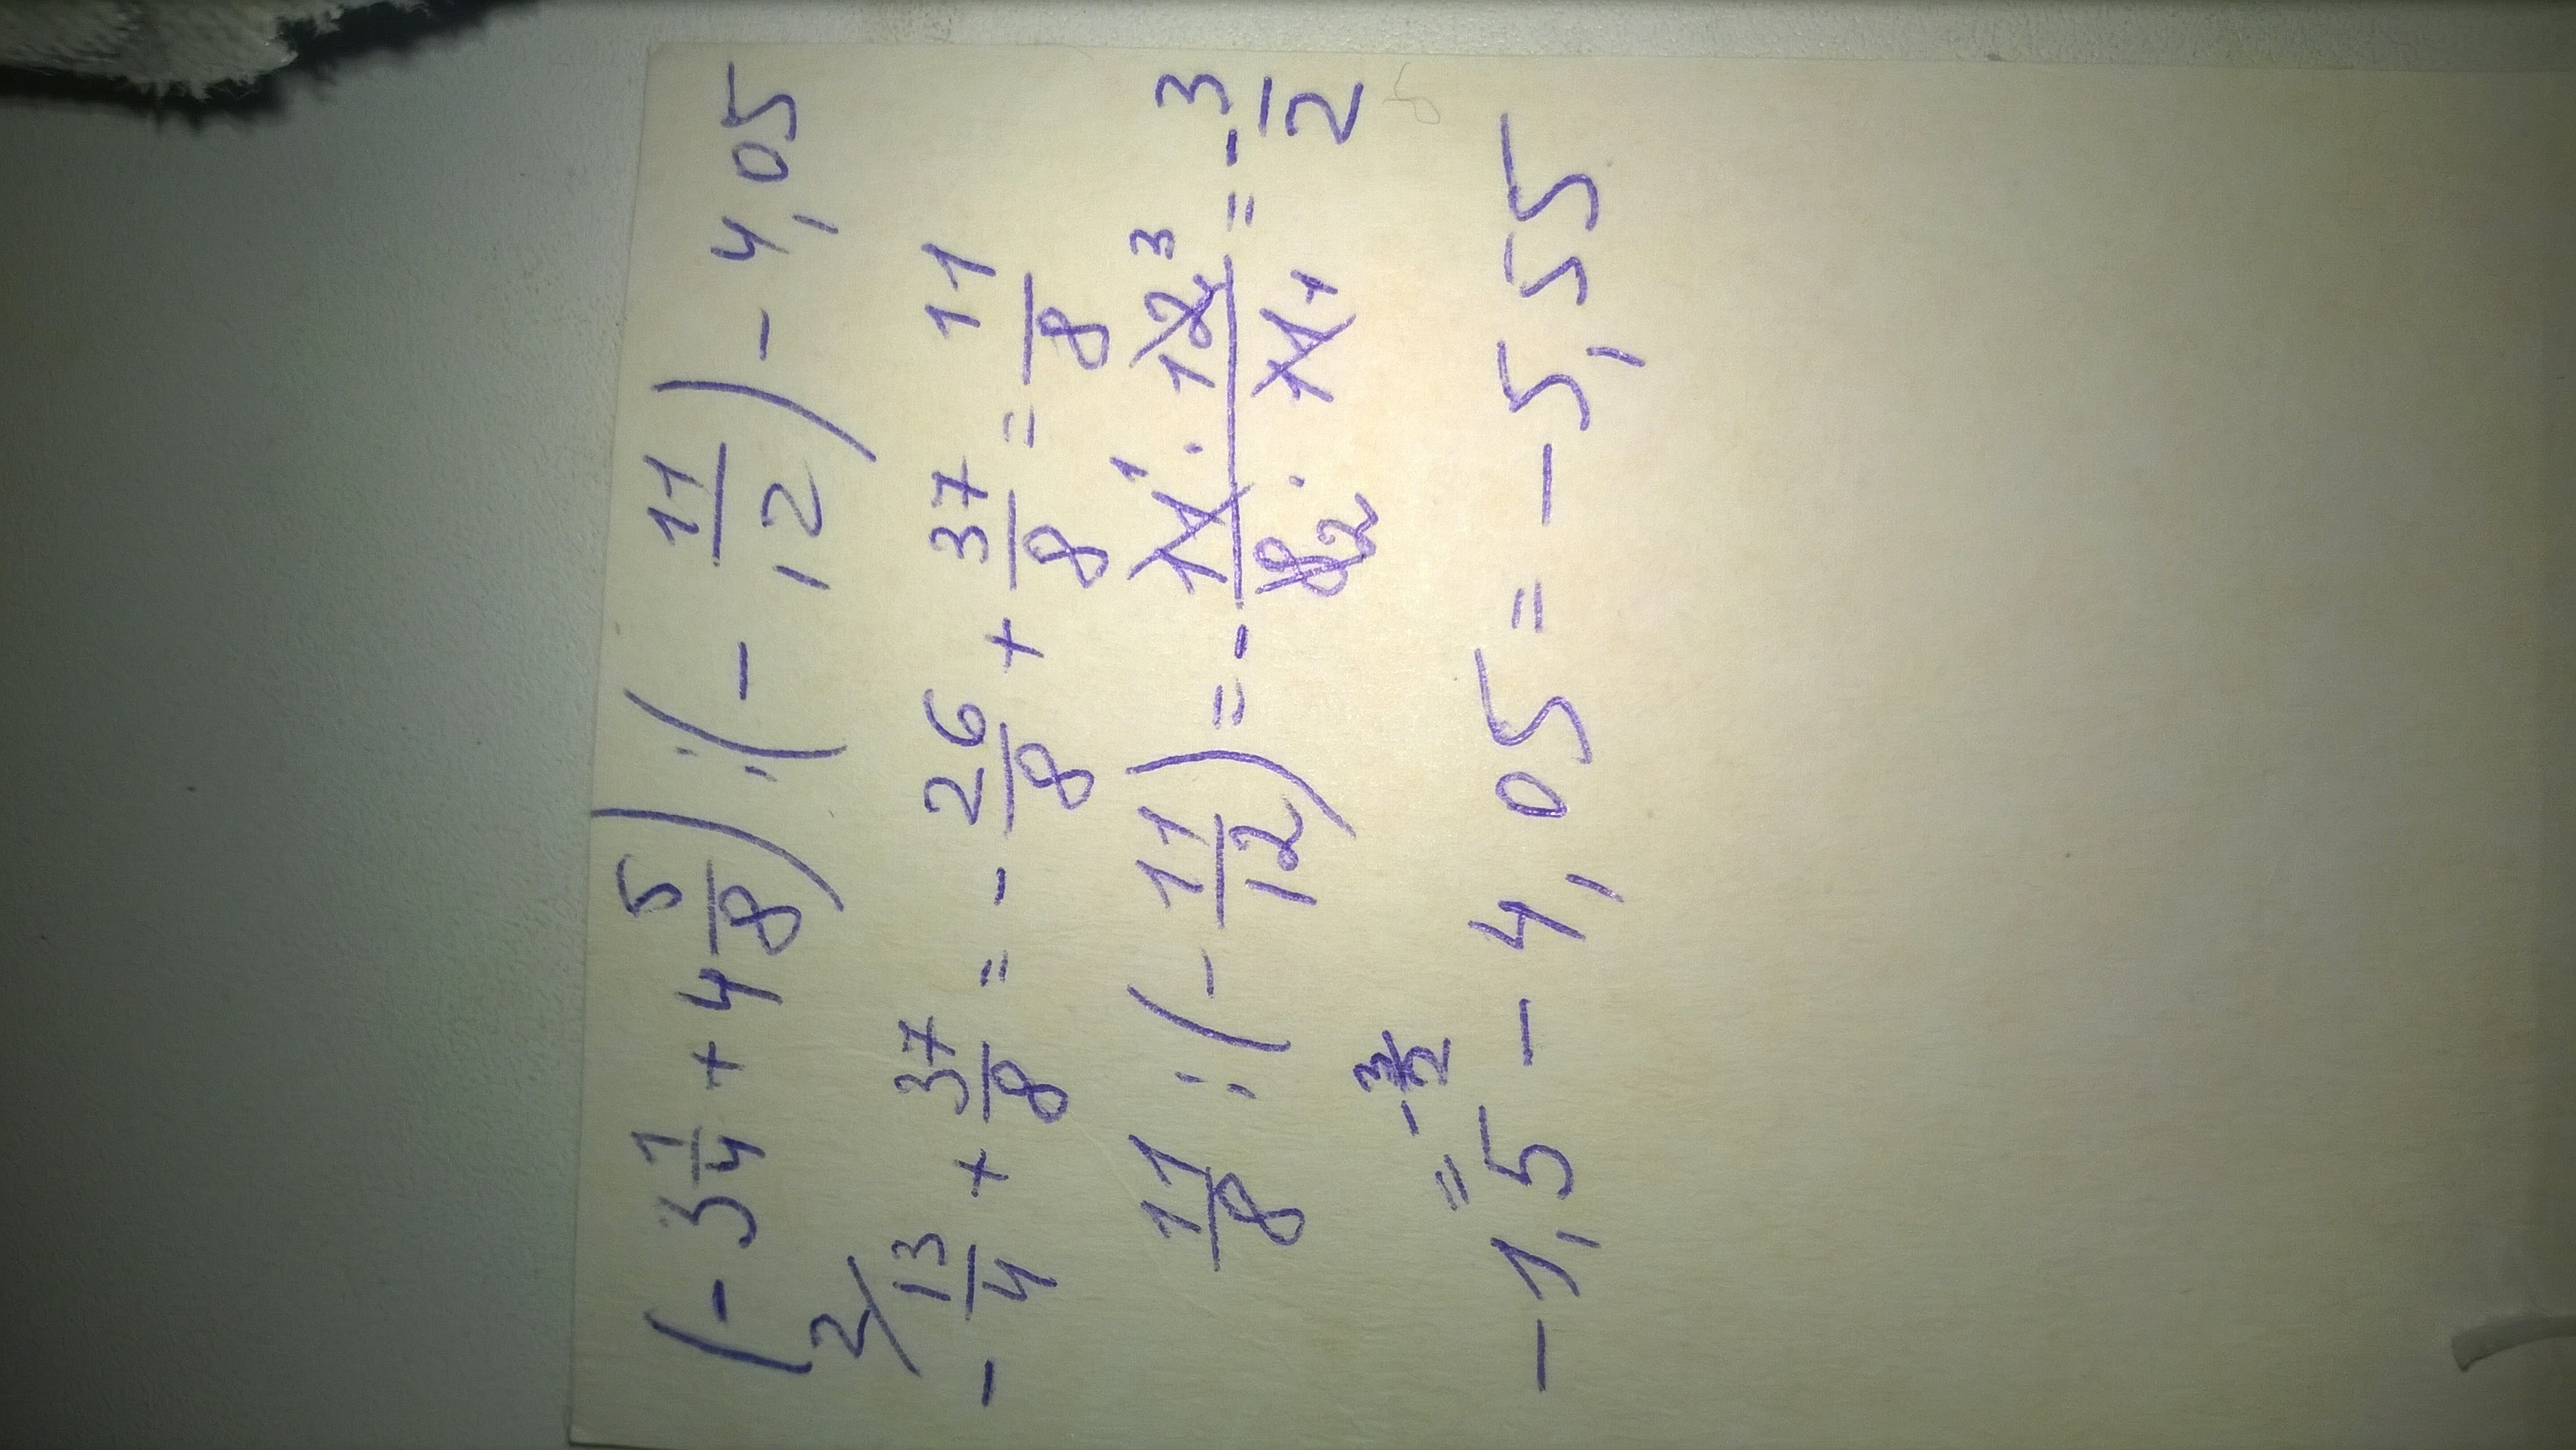 (- 3 1/4 + 4 5/8) : (- 11/12) - 4,05
2/ - 13/4 + 37/8 = - 26/8 + 37/8 = 11/8
11/8 : (- 11/12) = - 11 1 · 12 3 / 8 2 · 11 1 = - 3/2
= - 3/2
- 1,5 - 4,05 = - 5,55